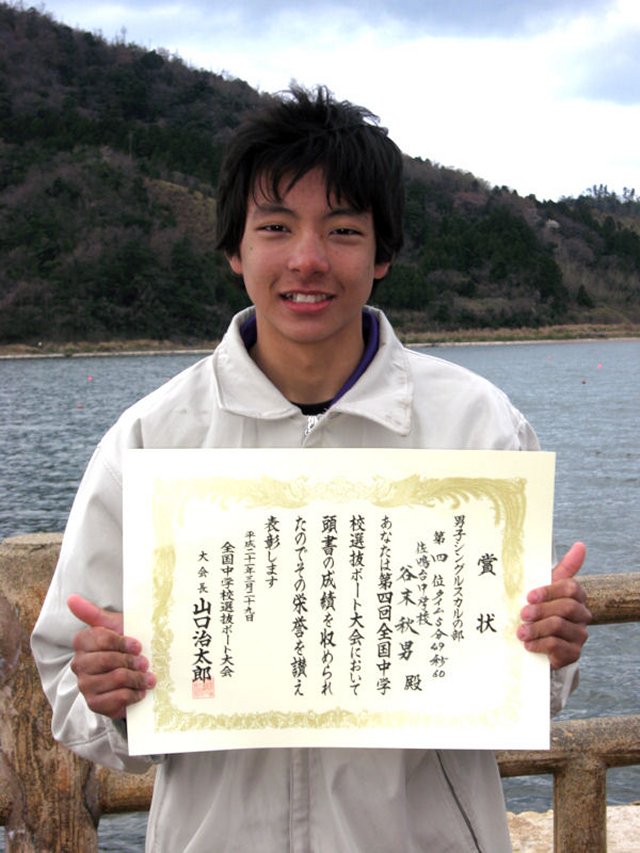 賞状
男子シングルスカルの部
第四位タイム5分49秒60
佐鳴台中学校
谷末秋男 殿
あなたは第四回全国中学
校選抜ボート大会において
頭書の成績を収められ
たのでその栄誉を讃え
表彰します
平成二十一年三月二十九日
全国中学校選抜ボート大会
大会長 山口治太郎